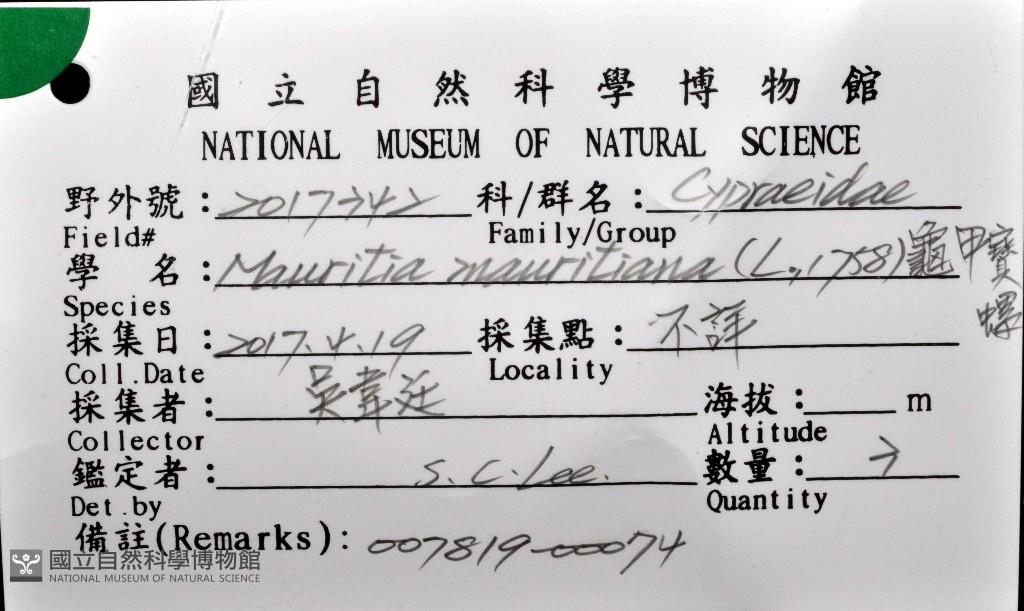 國立自然科學博物館
NATIONAL MUSEUM OF NATURAL SCIENCE
野外號: 科/群名: Cypraeidae
Field# Family/Group
學 名: Mauritia mauritiana (L., 1758) 龜甲寶螺
Species
採集日: 2017.4.19 採集點: 不詳
Coll.Date Locality
採集者: 吳韋廷 海拔: m
Collector Altitude
鑑定者: S. C. Lee. 數量:
Det.by Quantity
備註(Remarks): 007819-00074
國立自然科學博物館
NATIONAL MUSEUM OF NATURAL SCIENCE